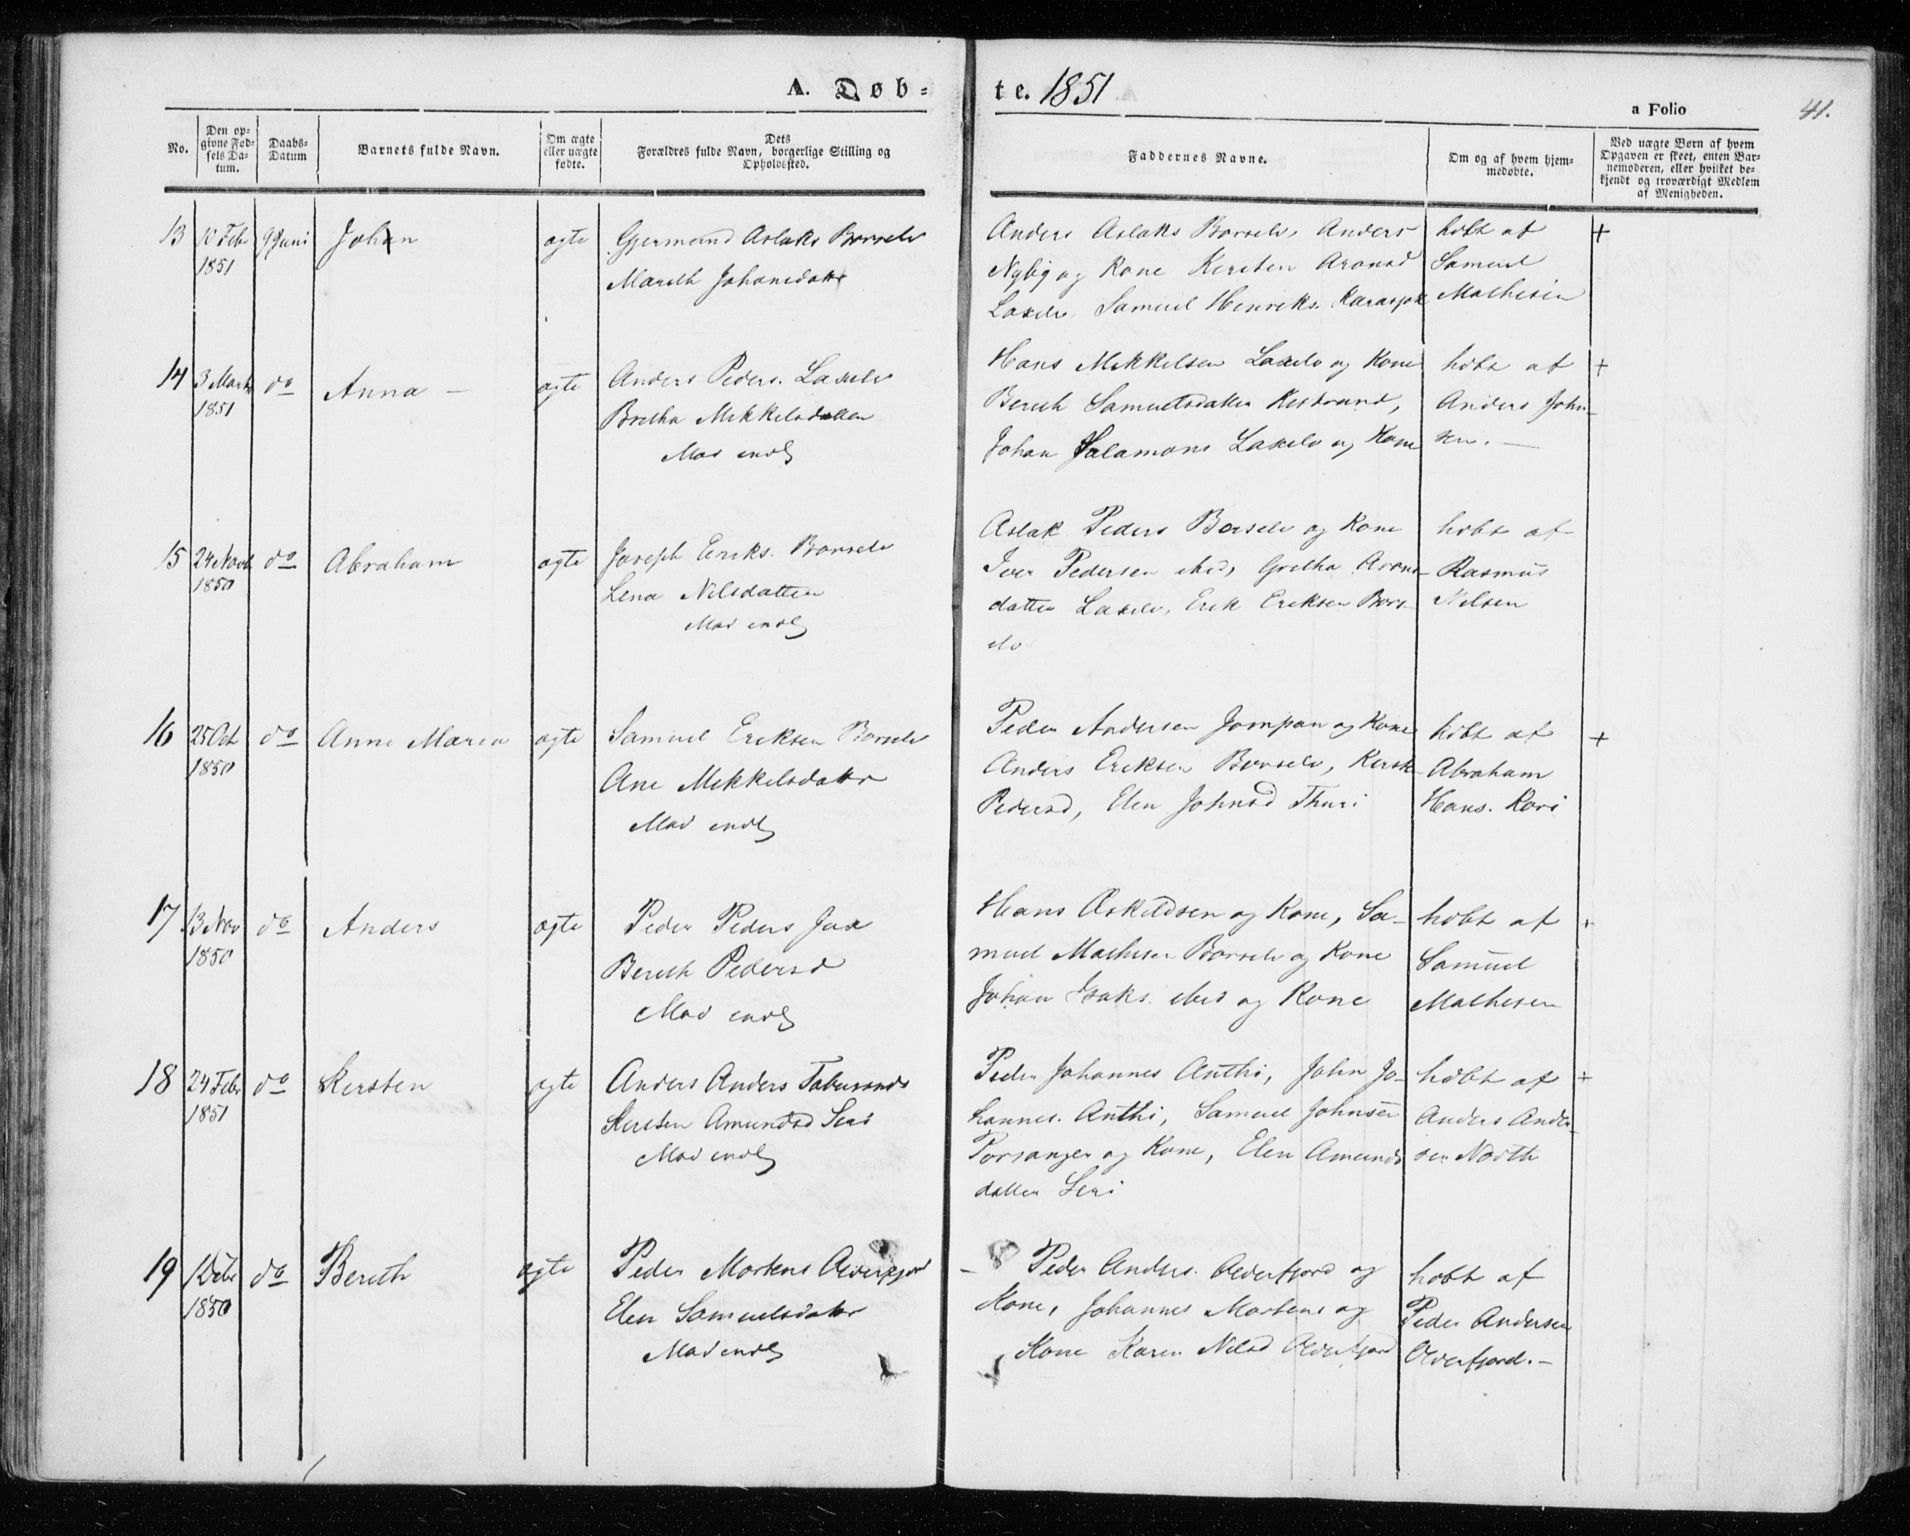 A. Døb-
te. 1851
a Folio
41.
No.
Den op-
givne Fød-
sels Da-
tum.
Daabs-
Datum
Barnets fulde Navn.
Om ægte
eller uægte
fødte.
Dets
Forældres fulde Navn, borgerlige Stilling og
Opholdssted.
Faddernes Navne.
Om og af hvem hjem-
medøbte.
Ved uægte Born af hvem
Opgaven er skeet, enten Bar-
nemoderen, eller hvilket be-
kjendt og troværdigt Medlem
af Menigheden.
13
10 Feb
1851
9 Juni
Johan
ægte
Gjermund Aslaks Børselv
Mareth Johansdatr
Anders Aslaks Børselv, Anders
Nybyg og Kone Kersten Aronsd
Laxelv. Samuel Henriks. Karasjok
høbt af
Samuel
Mathisen
+
14
3 Marts
1851
do
Anna —
ægte
Anders Peders. Laxelv
Bretha Mikkelsdatter
Mod indl
Hans Mikkelsen Laxelv og Kone
Bereth Samuelsdatter Kistrand,
Johan Salamons Laxelv og Kone
høbt af
Anders John-
sen. —
+
15
24 Novb
1850
do
Abraham
ægte
Joseph Eriks. Børselv
Lena Nilsdatter
Mod indl
Aslak Peders Børselv og Kone
Iver Pedersen ibid, Gretha Arons-
datter Laxelv, Erik Eriksen Børs-
elv
høbt af
Rasmus
Nilsen
16
25 Oct
1850
do
Anne Maria
ægte
Samuel Eriksen Børselv
Ane Mikkelsdatr
Mod indl
Peder Andersen Jompan og Kone
Anders Eriksen Børselv, Kerst-
Pedersd, Elen Johnsd Thuri
høbt af
Abraham
Hans. Rovi
+
17
13 Nov
1850
do
Anders
ægte
Peder Peders Jux
Bereth Pedersd
Mod indl
Hans Eskildsen og Kone, Sa-
muel Mathisen Børselv og Kone
Johan Isaks. ibid og Kone
høbt af
Samuel
Mathesen
+
18
24 Febr
1851
do
Kersten
ægte
Anders Anders
Kersten Amundsd Siri
Mod indl
Peder Johannes Anthi, John Jo-
hannes. Anthi, Samuel Johnsen
Porsanger og Kone, Elen Amunds
datter Siri
høbt af
Anders Ander-
sen
+
19
1850
do
Bereth
ægte
Peder Mortens Olderfjord
Elen Samuelsdatr
Mod indl
Peder Anders. Olderfjord og
Kone, Johannes Mortens og
Kone Karen Nilsd Olderfjord
høbt af
Peder Andersen
Olderfjord. —